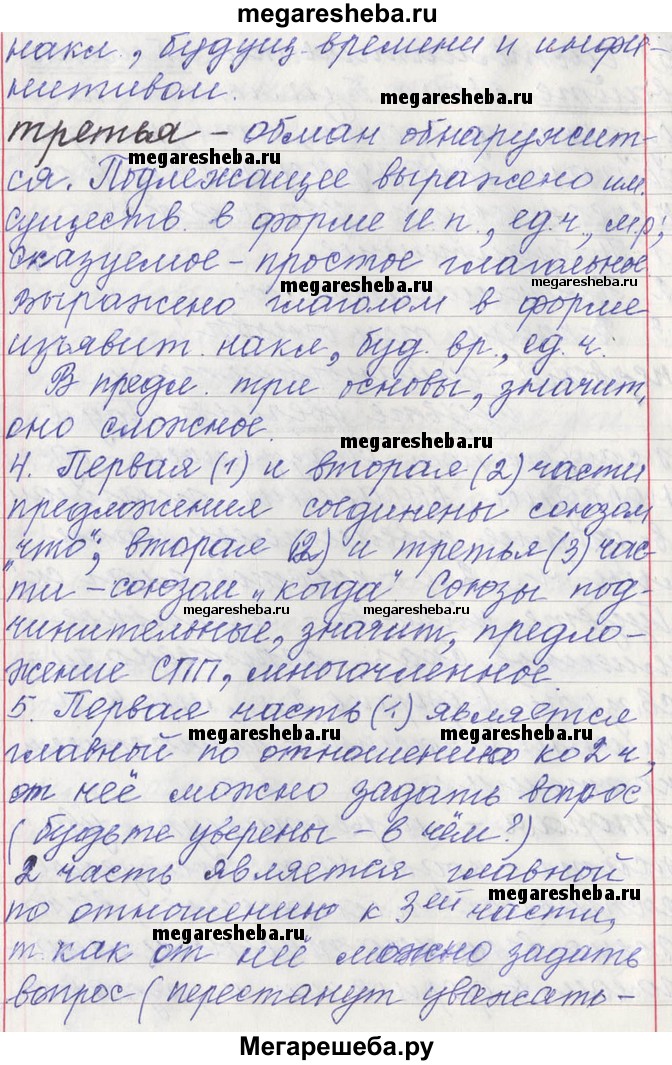 megaresheba.ru
накл., будущ. времени и инфи-
нитивом.
megaresheba.ru
третья – обман обнаружит-
megaresheba.ru
ся. Подлежащее выражено им.
существ. в форме И.п., ед.ч., м.р,
сказуемое – простое глагольное
megaresheba.ru
выражено глаголом в форме
изъявит. накл, буд. вр., ед. ч.
В предл. три основы, значит,
оно сложное.
megaresheba.ru
4. Первая (1) и вторая (2) части
предложения соединены союзом
„что“, вторая (2) и третья (3) час-
ти – союзом „когда“. Союзы под-
megaresheba.ru megaresheba.ru
чинительные, значит, предло-
жение СПП, многочленное
megaresheba.ru
5. Первая часть (1) является
megaresheba.ru
главной по отношению ко 2 ч,
от неё можно задать вопрос
(будьте уверены – в чём?)
2 часть является главной
megaresheba.ru
по отношению к 3ей части,
megaresheba.ru
т. как от неё можно задать
вопрос (перестанут уважать –
Мегарешеба.ру